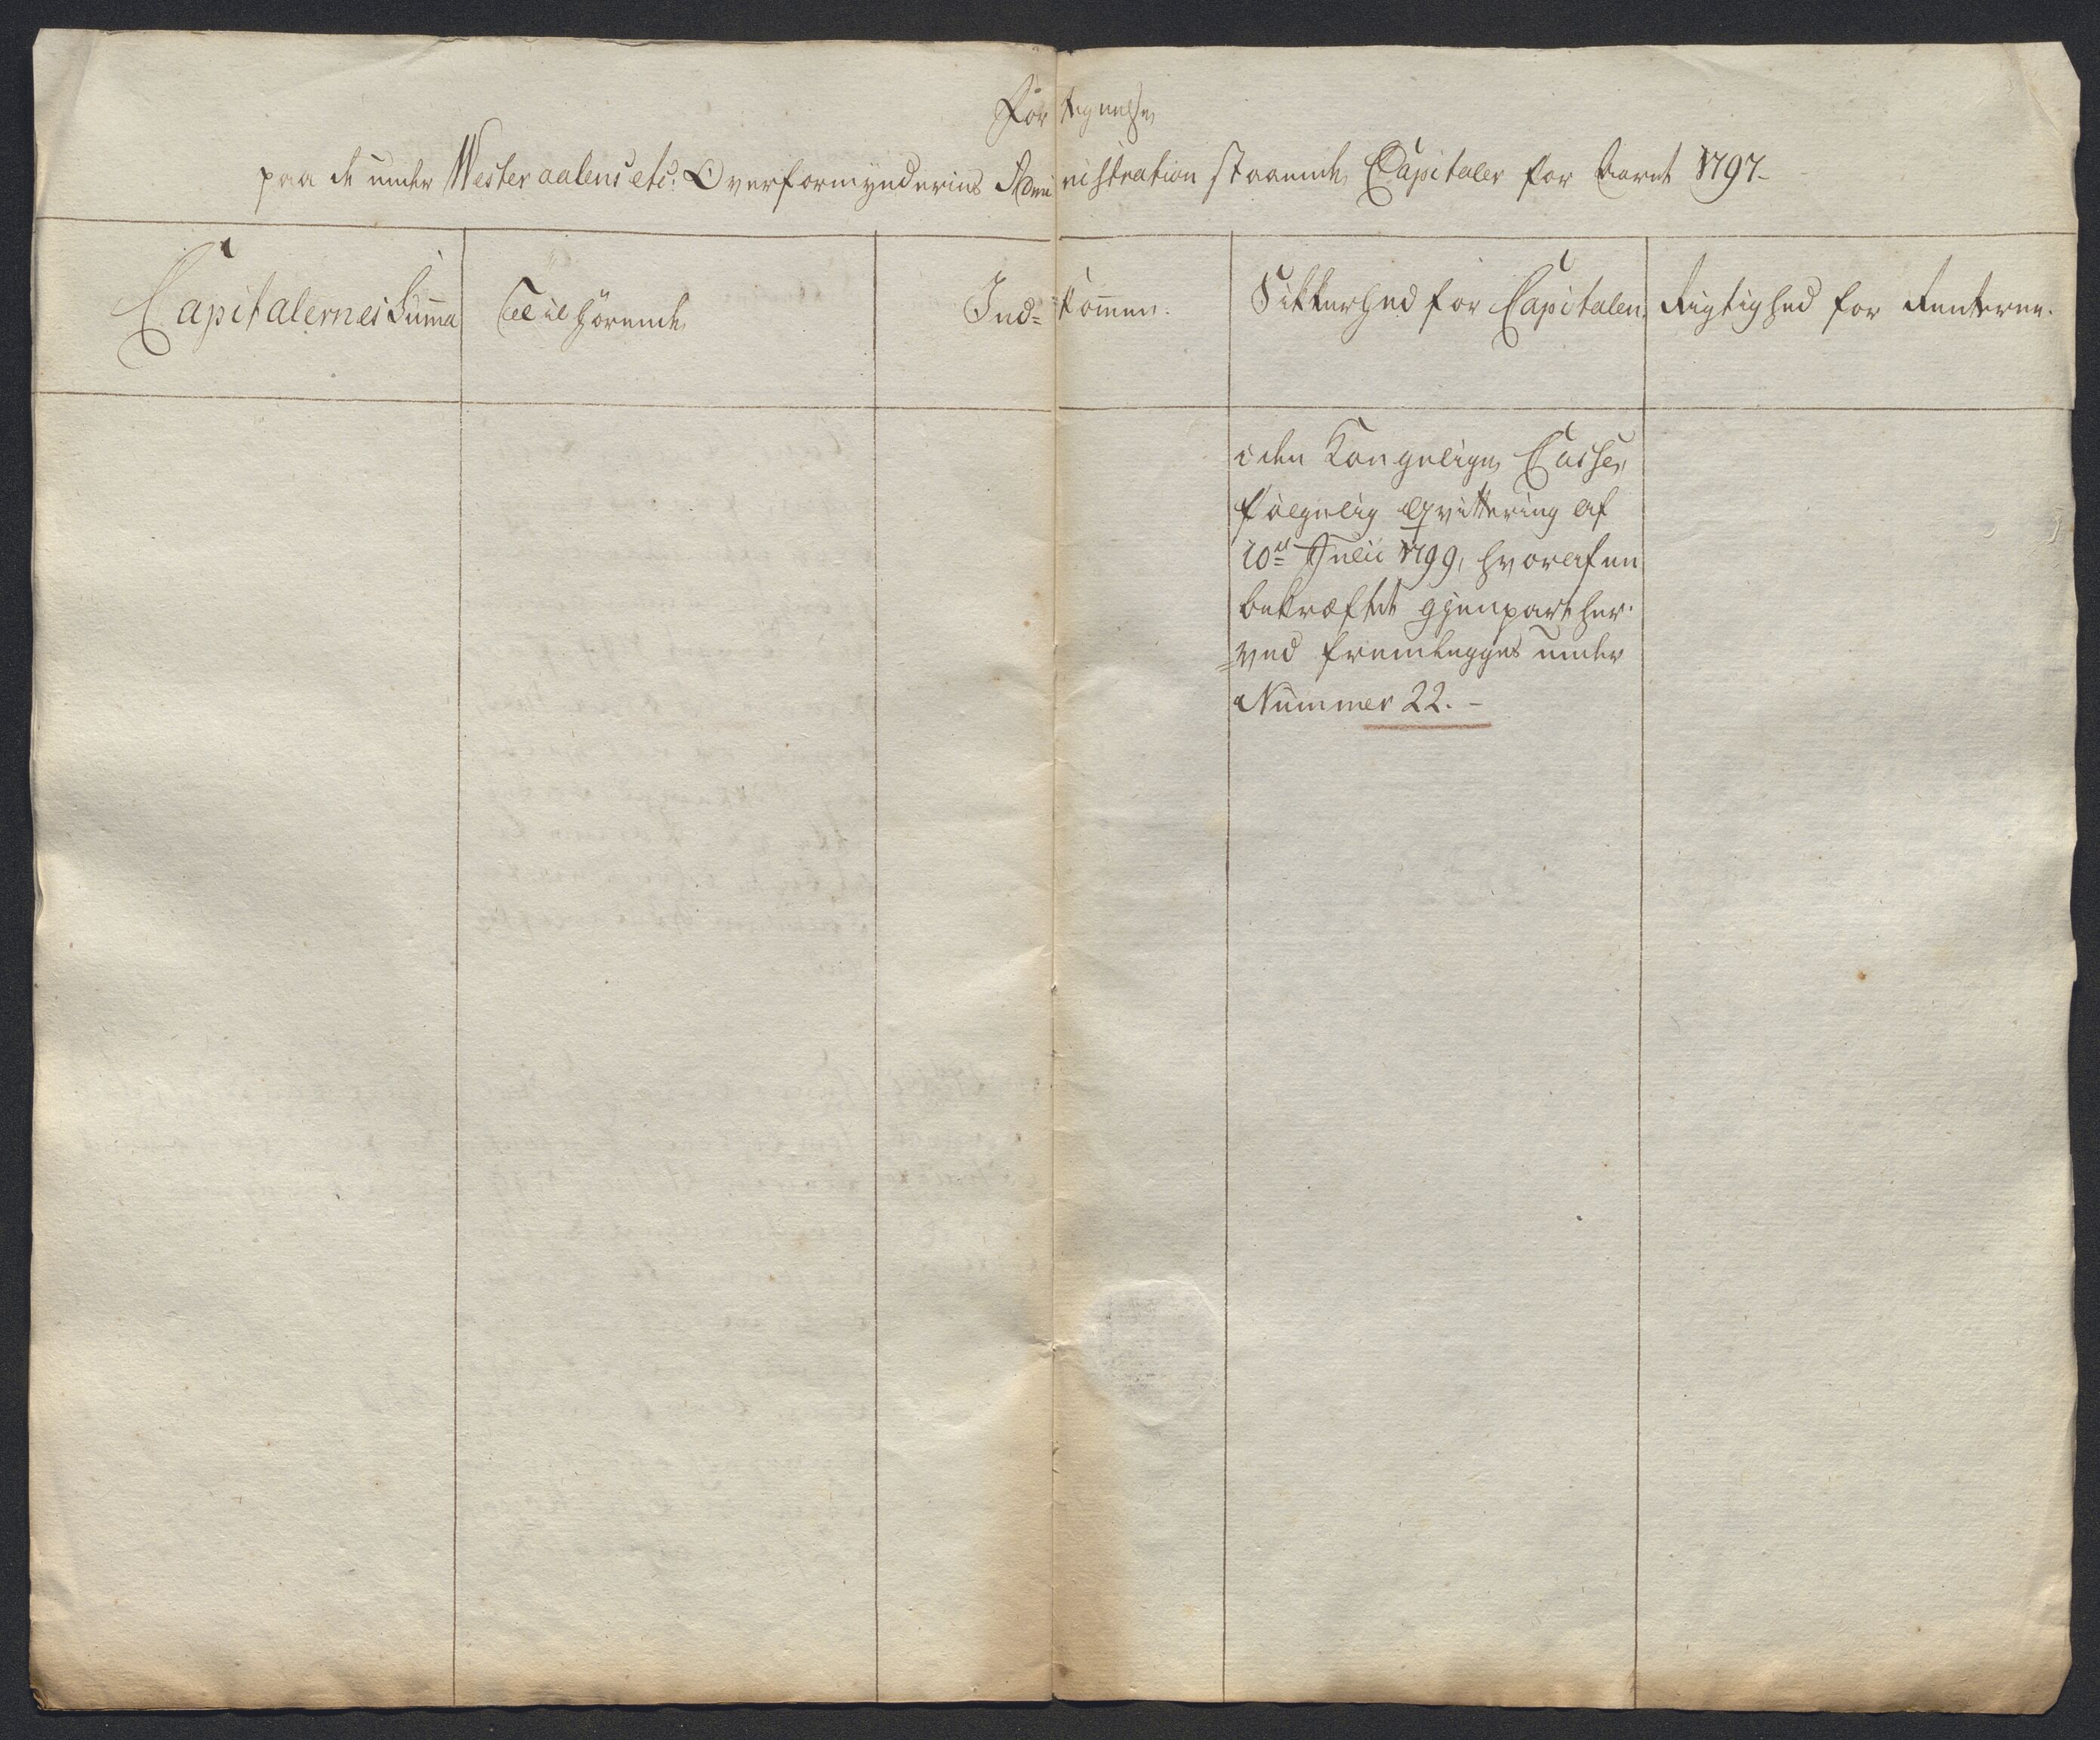 Fortegnelse
paa de under Westeraalens etc: Overformynderies Administration staaende Capitaler for Aaret 1797-
Capitalernes Sum̄a
Tilhörende
Ind= kom̄en.
Sikkerhed for Capitalen.
Rigtighed for Renterne.
i den Kongelige Casse,
følgelig Qvittering af
20de Julii 1799, hvoraf en
bekræftet Gjenpart her-
=ved fremlegges under
Nummer 22. -